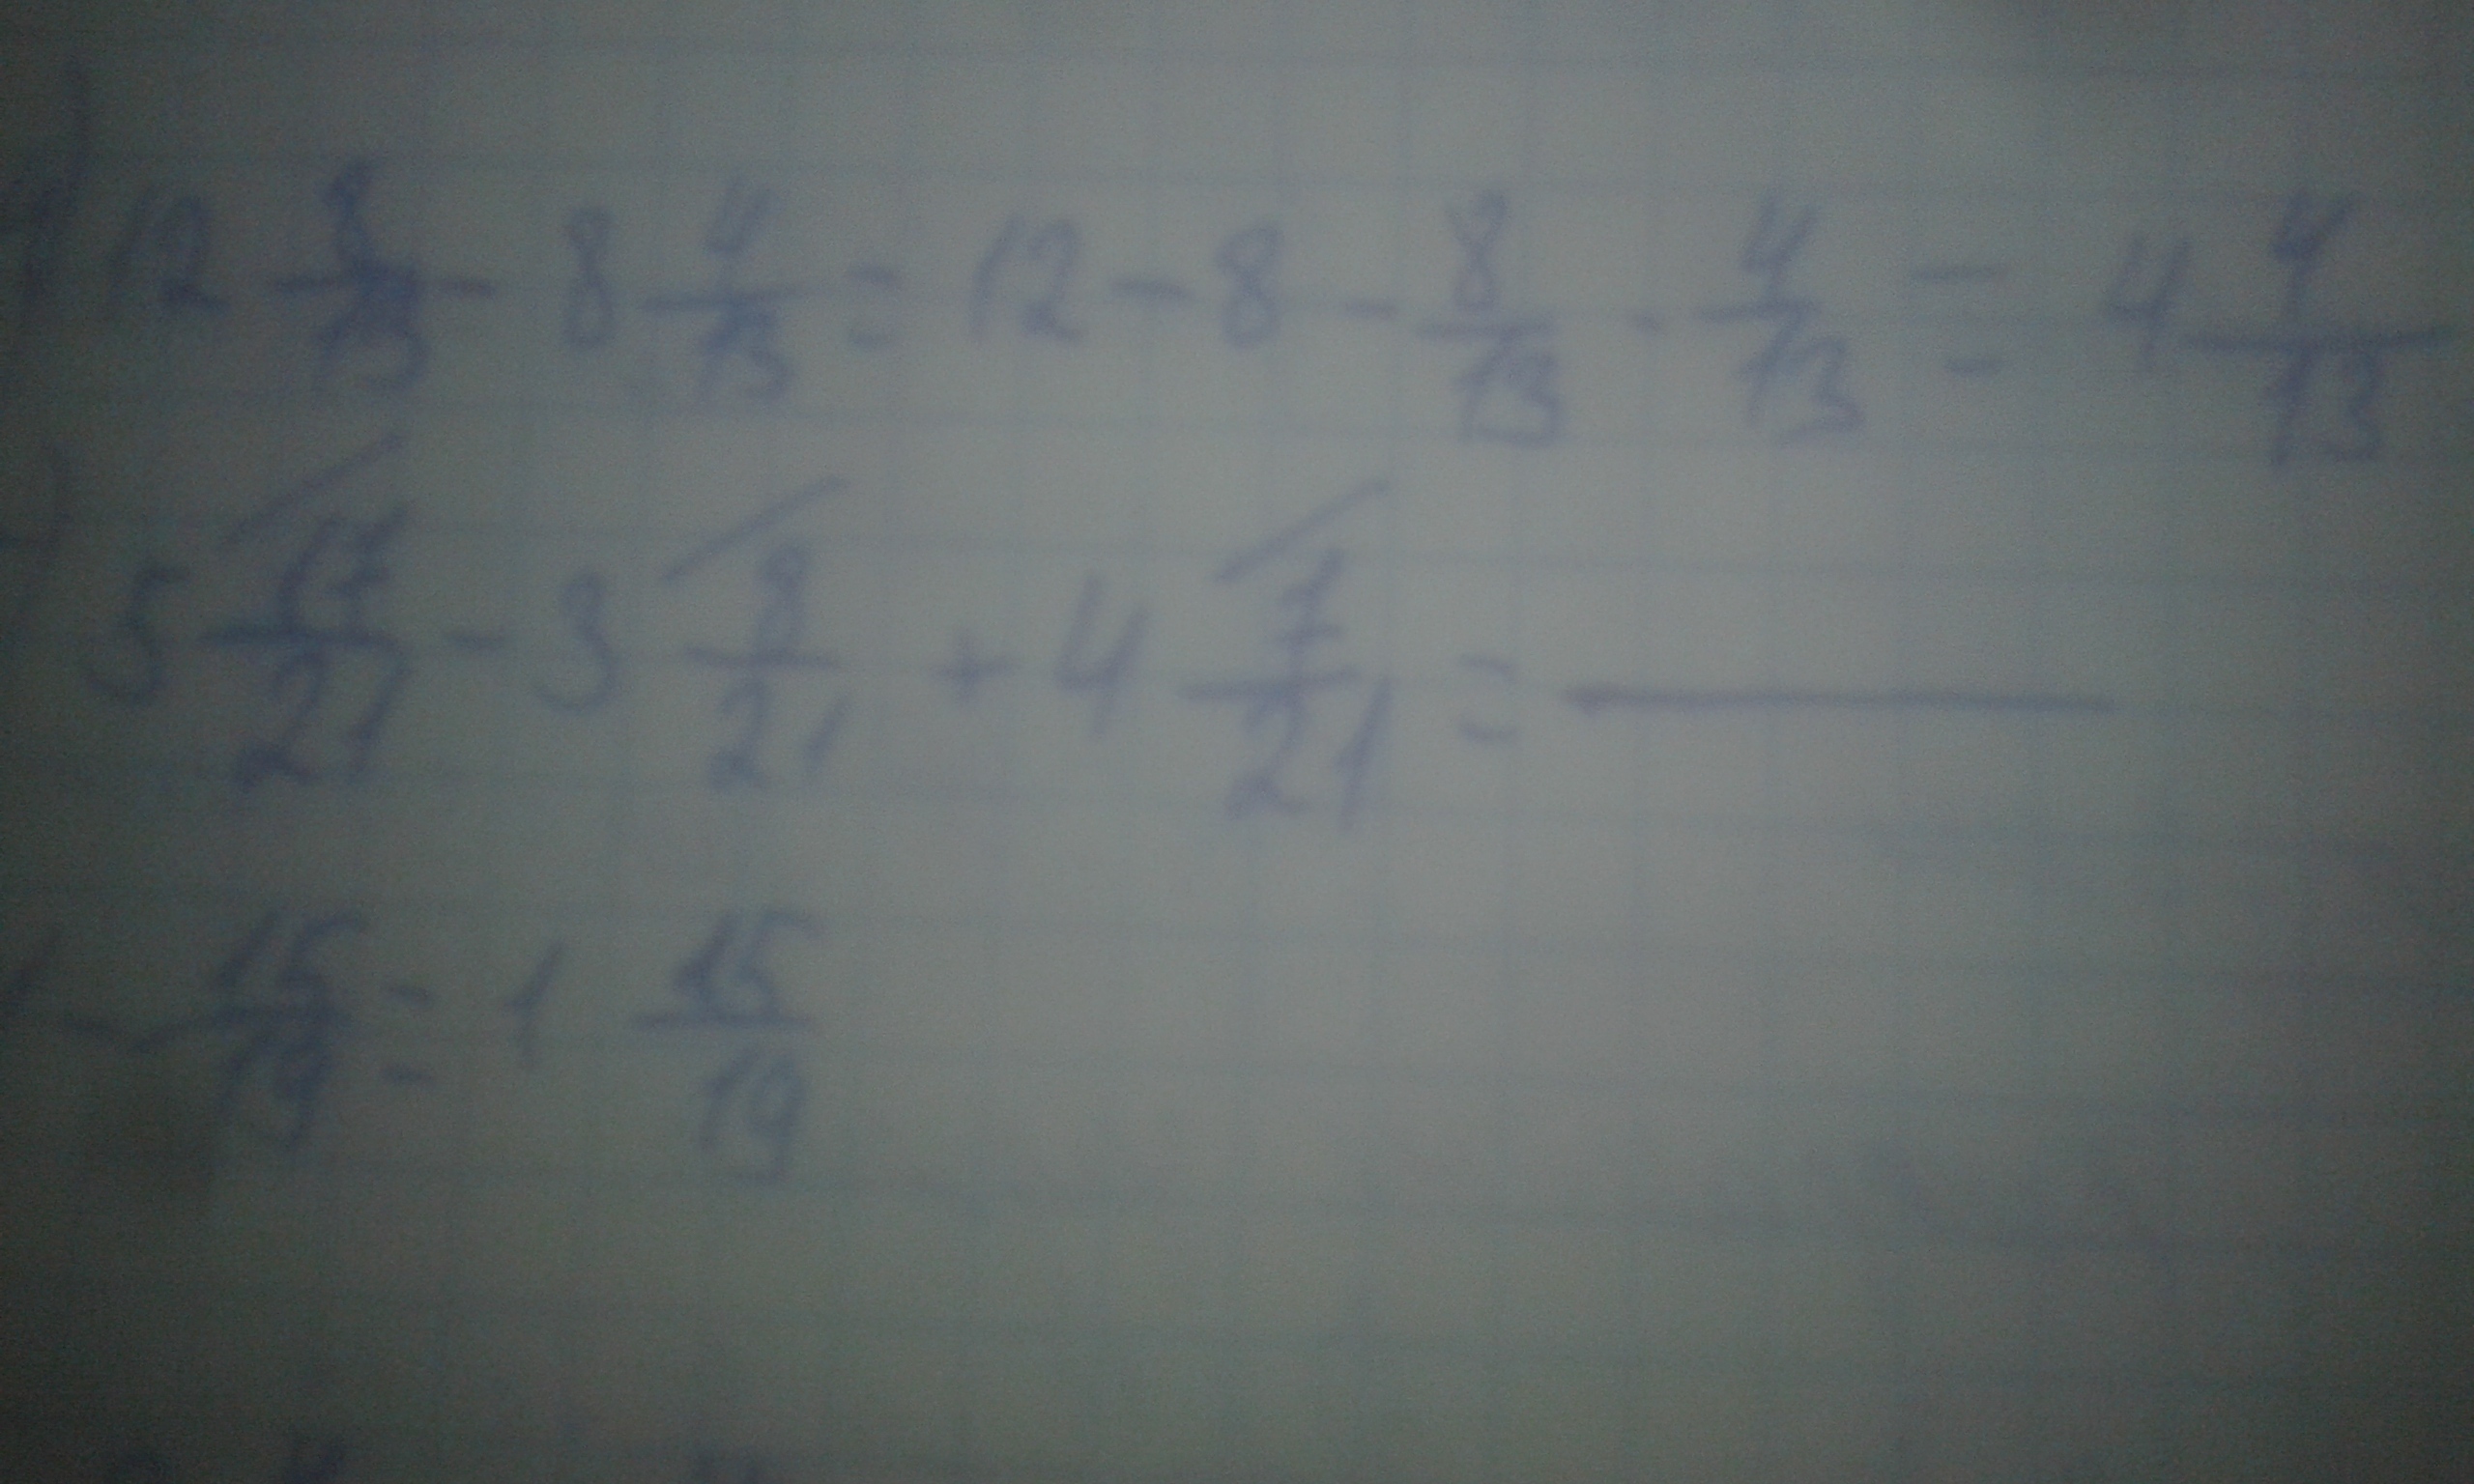 12 8/13 - 8 4/13 = 12 - 8 - 8/13 - 4/13 = 4 4/13
5 17/21 - 3 8/21 + 4 7/21 =
1 - 15/19 = 1 15/19